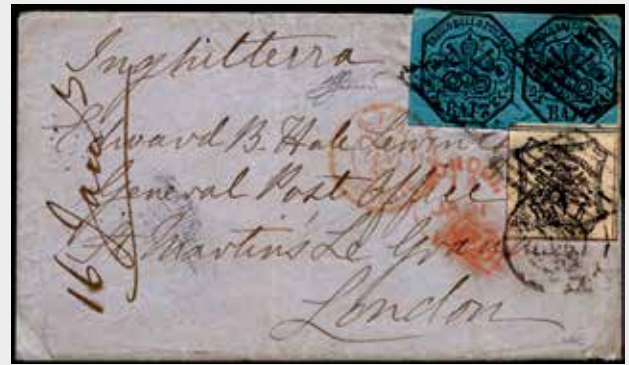 Inghilterra
Edward B. Hale Lewin
General Post Office
St Martin's Le Grand
London
16 Jany
BAJ 7
BAJ
LONDON